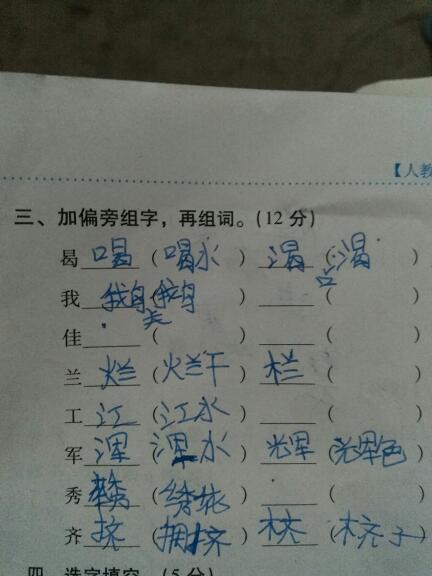 【人教
三、加偏旁组字，再组词。（12分）
曷 喝 （喝水） 渴 （口渴）
我 鹅 （天鹅） （ ）
佳 （ ） （ ）
兰 烂 （烂干） 栏 （ ）
工 江 （江水） （ ）
军 浑 （浑水） 辉 （辉色）
秀 （绣花） （ ）
齐 挤 （拥挤） 桥 （ 子）
四、选字填空。（5分）